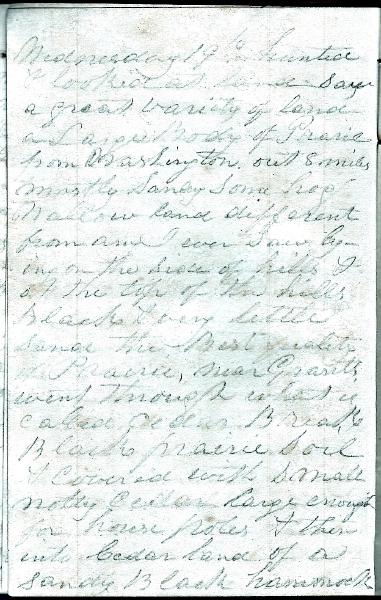 Wednesday 19th hunted
& looked at land saw
a great variety of land
a Large Body of Prarie
from Washington out 8 miles
mostly Sandy Some hog
Wallow land different
from any I ever Saw ly
ing on the Side of hills &
at the top of the hills
black & very little
Sand the Best quality
of Prairie, near Grants
went through what is
called Cedar Breaks
Black prairie Soil
& Covered with Small
notty Cedar large enough
for house poles & then
into Cedar land of a
Sandy Black hammock